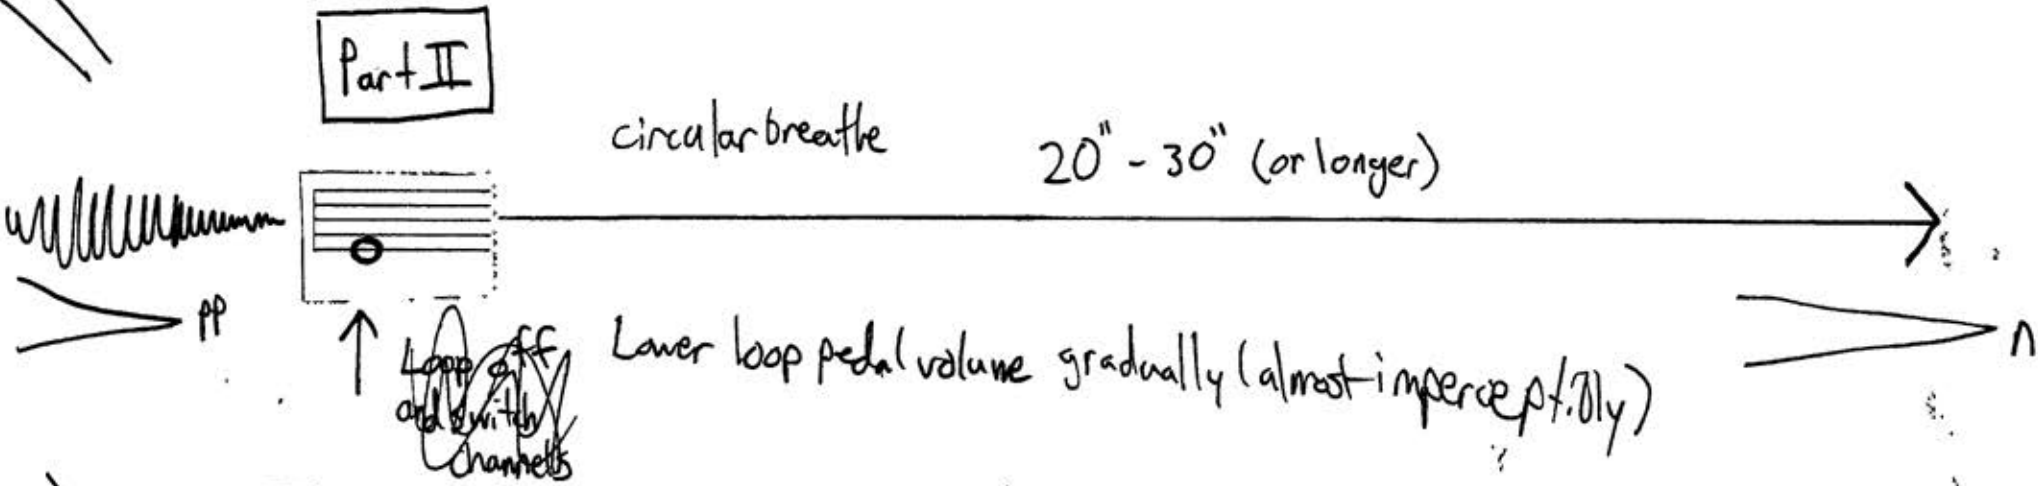 Part II
circular breathe
20" - 30" (or longer)
pp
Loop off
and switch
channels
Lower loop pedal volume gradually (almost imperceptibly)
n